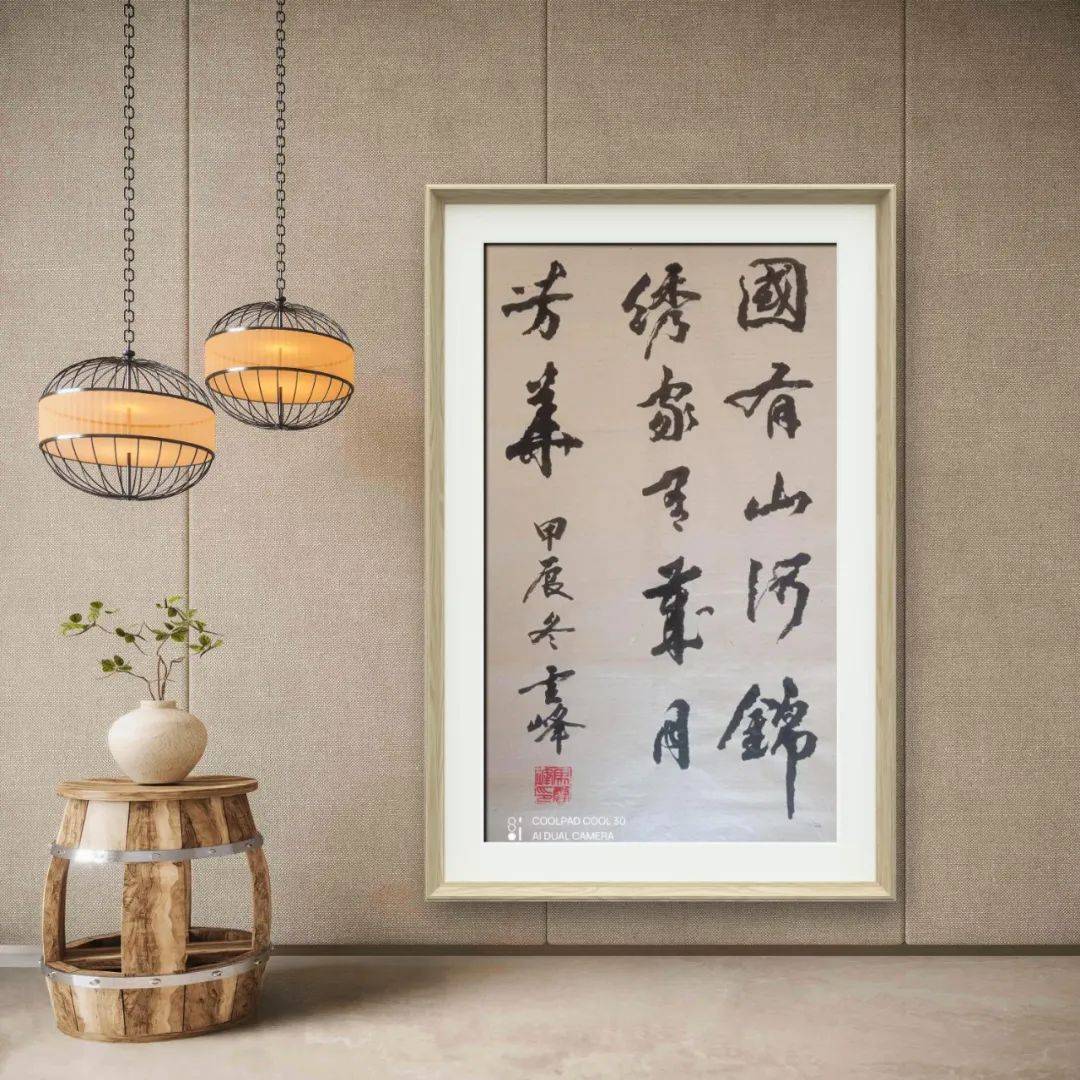 國有山河錦
绣家有歲月
芳華
甲辰冬雲峰
COOLPAD COOL 30
AI DUAL CAMERA